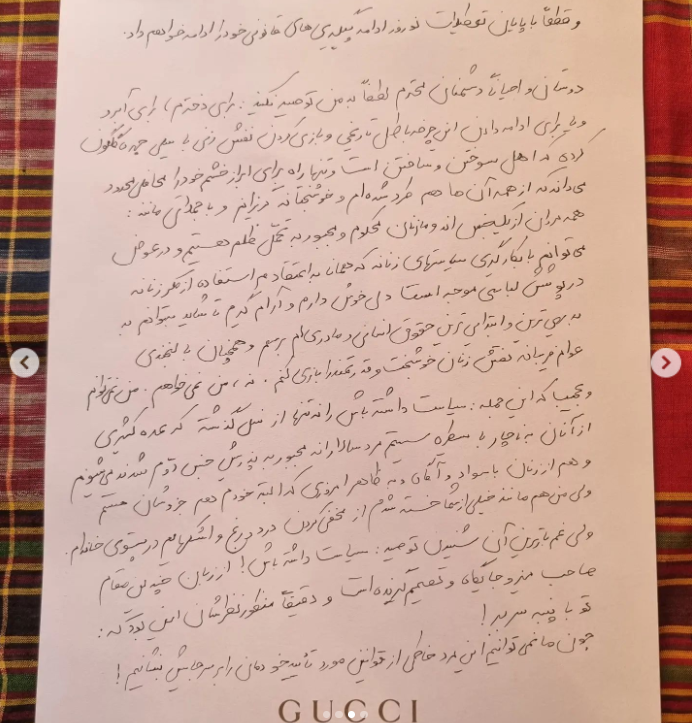 و قطعاً با پایان تعطیلات نوروز ادامه پیگیری‌های قانونی خود را ادامه خواهم داد.
دوستان و احیاناً دشمنان محترم لطفاً به من توصیه نکنید: برای دخترم، برای آبرو
و یا برای ادامه دادن این چرخه باطل تاریخی و بازی کردن نقش زنی با سیلی چهره گلگون
کرده که اهل سوختن و ساختن است و تنها راه برای ابراز خشم خود را محافلی محدود
می‌داند که از همه آن‌ها هم طرد شده‌ام و خوشبختانه گریزانم و با جملاتی مانند:
همه مردان از یک جنس‌اند و ما زنان محکوم و مجبور به تحمّل ظلم هستیم و در عوض
می‌توانم با بکارگیری سیاستهای زنانه که همانا به اعتقادم استفاده از مکر زنانه
در پوشش لباسی موجه است دل خوش دارم و آرام گیرم تا شاید بتوانم به
به بدیهی‌ترین و ابتدایی‌ترین حقوق انسانی و مادری‌ام برسم و همچنان با لبخندی
عوام فریبانه نقش زنان خوشبخت و قدرتمند را بازی کنم. نه، من نمی‌خواهم. من نمی‌توانم
و عجیب که این جمله: سیاست داشته باش را نه تنها از نسل گذشته که عمده کثیری
از آنان به ناچار با سیطره سیستم مردسالارانه مجبور به پذیرش جنس دوّم شدند می‌شنویم
و هم از زنان باسواد و آگاه و به ظاهر امروزی که البته خودم هم جزوشان هستم
ولی من هم مانند خیلی از شما خسته شدم از مخفی کردن درد و رنج و اشکهایم در پستوی خانه‌ام.
ولی غم بارترین آن شنیدن توصیه: سیاست داشته باش! از زبان چندین مقام
صاحب میز و جایگاه و تصمیم گیرنده است و دقیقاً منظور نظرشان این بود که:
تو با پنبه سر ببر!
چون ما نمی‌توانیم این مرد خاطی از قوانین مورد تأیید خودمان را بر سر جایش بنشانیم!
GUCCI